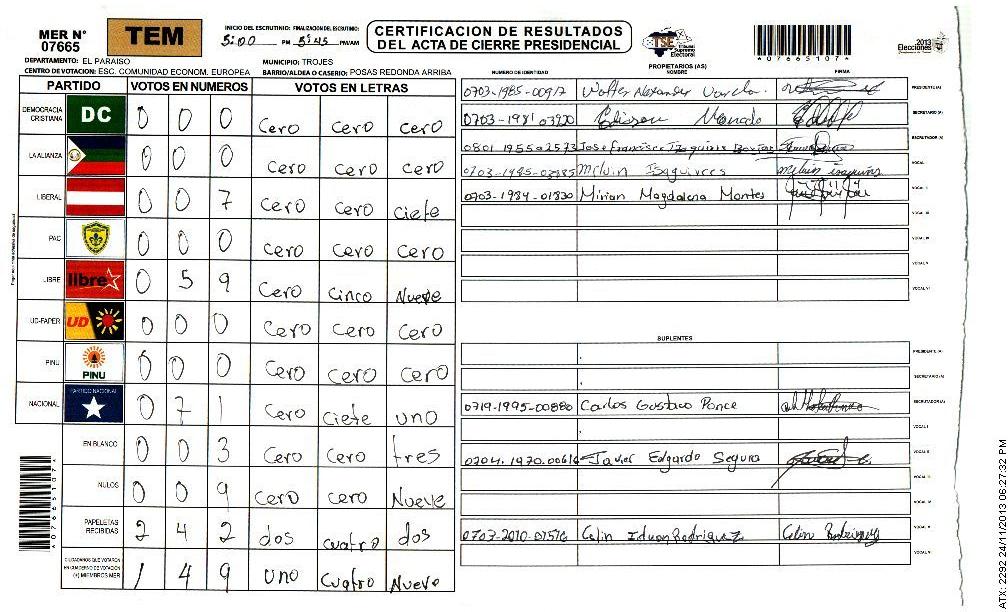 MER N° 07665
TEM
INICIO DEL ESCRUTINIO: FINALIZACION DEL ESCRUTINIO:
5:00 PM 5:45 PM/AM
CERTIFICACION DE RESULTADOS
DEL ACTA DE CIERRE PRESIDENCIAL
TSE Tribunal Supremo Electoral
*07665107*
2013 Elecciones
DEPARTAMENTO: EL PARAISO MUNICIPIO: TROJES
CENTRO DE VOTACION: ESC. COMUNIDAD ECONOM. EUROPEA BARRIO/ALDEA O CASERIO: POSAS REDONDA ARRIBA
PARTIDO VOTOS EN NUMEROS VOTOS EN LETRAS
DEMOCRACIA CRISTIANA DC 0 0 0 Cero Cero Cero
LA ALIANZA 0 0 0 Cero Cero Cero
LIBERAL 0 0 7 Cero Cero Ciete
PAC 0 0 0 Cero Cero Cero
LIBRE libre 0 5 9 Cero Cinco Nueve
UD-FAPER UD 0 0 0 Cero Cero Cero
PINU PINU 0 0 0 Cero Cero Cero
NACIONAL PARTIDO NACIONAL 0 7 1 Cero Ciete uno
EN BLANCO 0 0 3 Cero Cero tres
NULOS 0 0 9 Cero Cero Nueve
PAPELETAS RECIBIDAS 2 4 2 dos cuatro dos
CIUDADANOS QUE VOTARON EN CUADERNO DE VOTACION (+) MIEMBROS MER 1 4 9 uno Cuatro Nueve
*07665107*
PROPIETARIOS (AS)
NUMERO DE IDENTIDAD NOMBRE FIRMA
0703-1985-00917 Walter Alexander Varela. PRESIDENTE (A)
0703-1981 03920 Edison SECRETARIO (A)
0801 1955 02573 Jose Francisco Izaguirre ESCRUTADOR (A)
0703-1995-03385 Melvin Isaguirres VOCAL I
0703-1984-01830 Mirian Magdalena Montes VOCAL II
VOCAL III
VOCAL IV
VOCAL V
VOCAL VI
SUPLENTES
PRESIDENTE (A)
SECRETARIO (A)
0719-1995-00880 Carlos Gustavo Ponce ESCRUTADOR (A)
VOCAL I
0704-1970-00616 Javier Edgardo Segura VOCAL II
VOCAL III
VOCAL IV
0703-2010-01516 Celin Rodriguez Celin Rodriguez VOCAL V
VOCAL VI
ATX: 2292 24/11/2013 06:27:32 PM